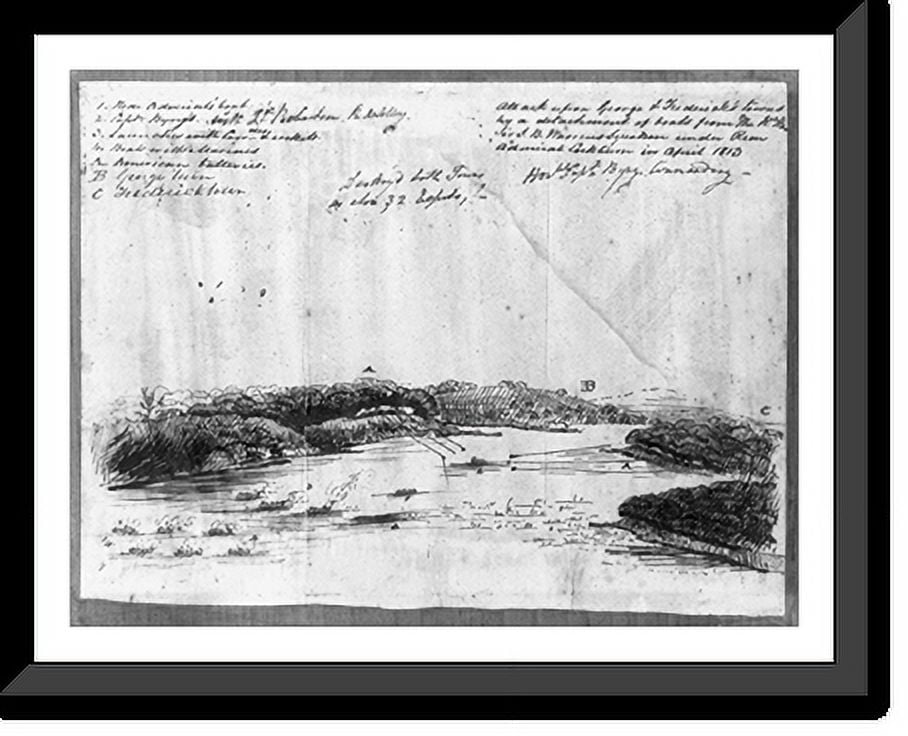 1. Rear Admiral's boat
2. Capt Byng's. with Lt Robertson. R. Artillery.
3. Launches with and rockets
Boats with Marines
A. American batteries.
B George town
C Frederick town
Destroyd both Towns
as also 32
Attack upon George & Frederick's towns
by a detachment of boats from the Rt Hon
Sir J. B. Warren's Squadron under Rear
Admiral Cockburn in April 1813
Honl Capt Byng. Commanding -
A
B
C
A